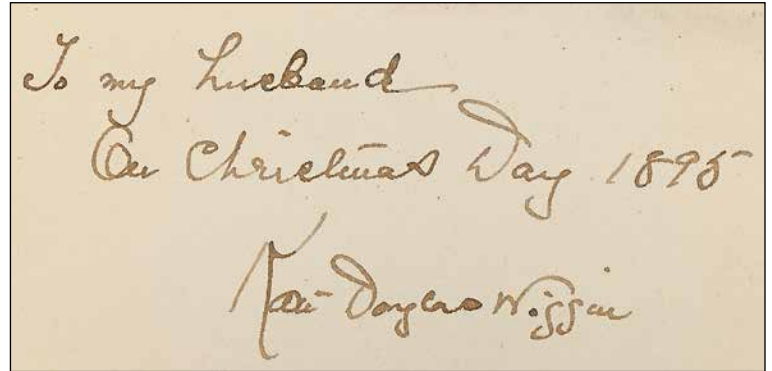 To my husband
On Christmas Day 1895
Kate Douglas Wiggin